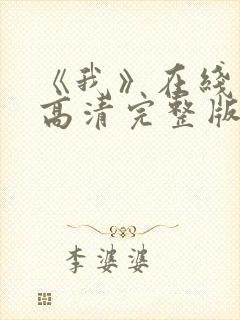 《我》在线
高清完整版
李婆婆